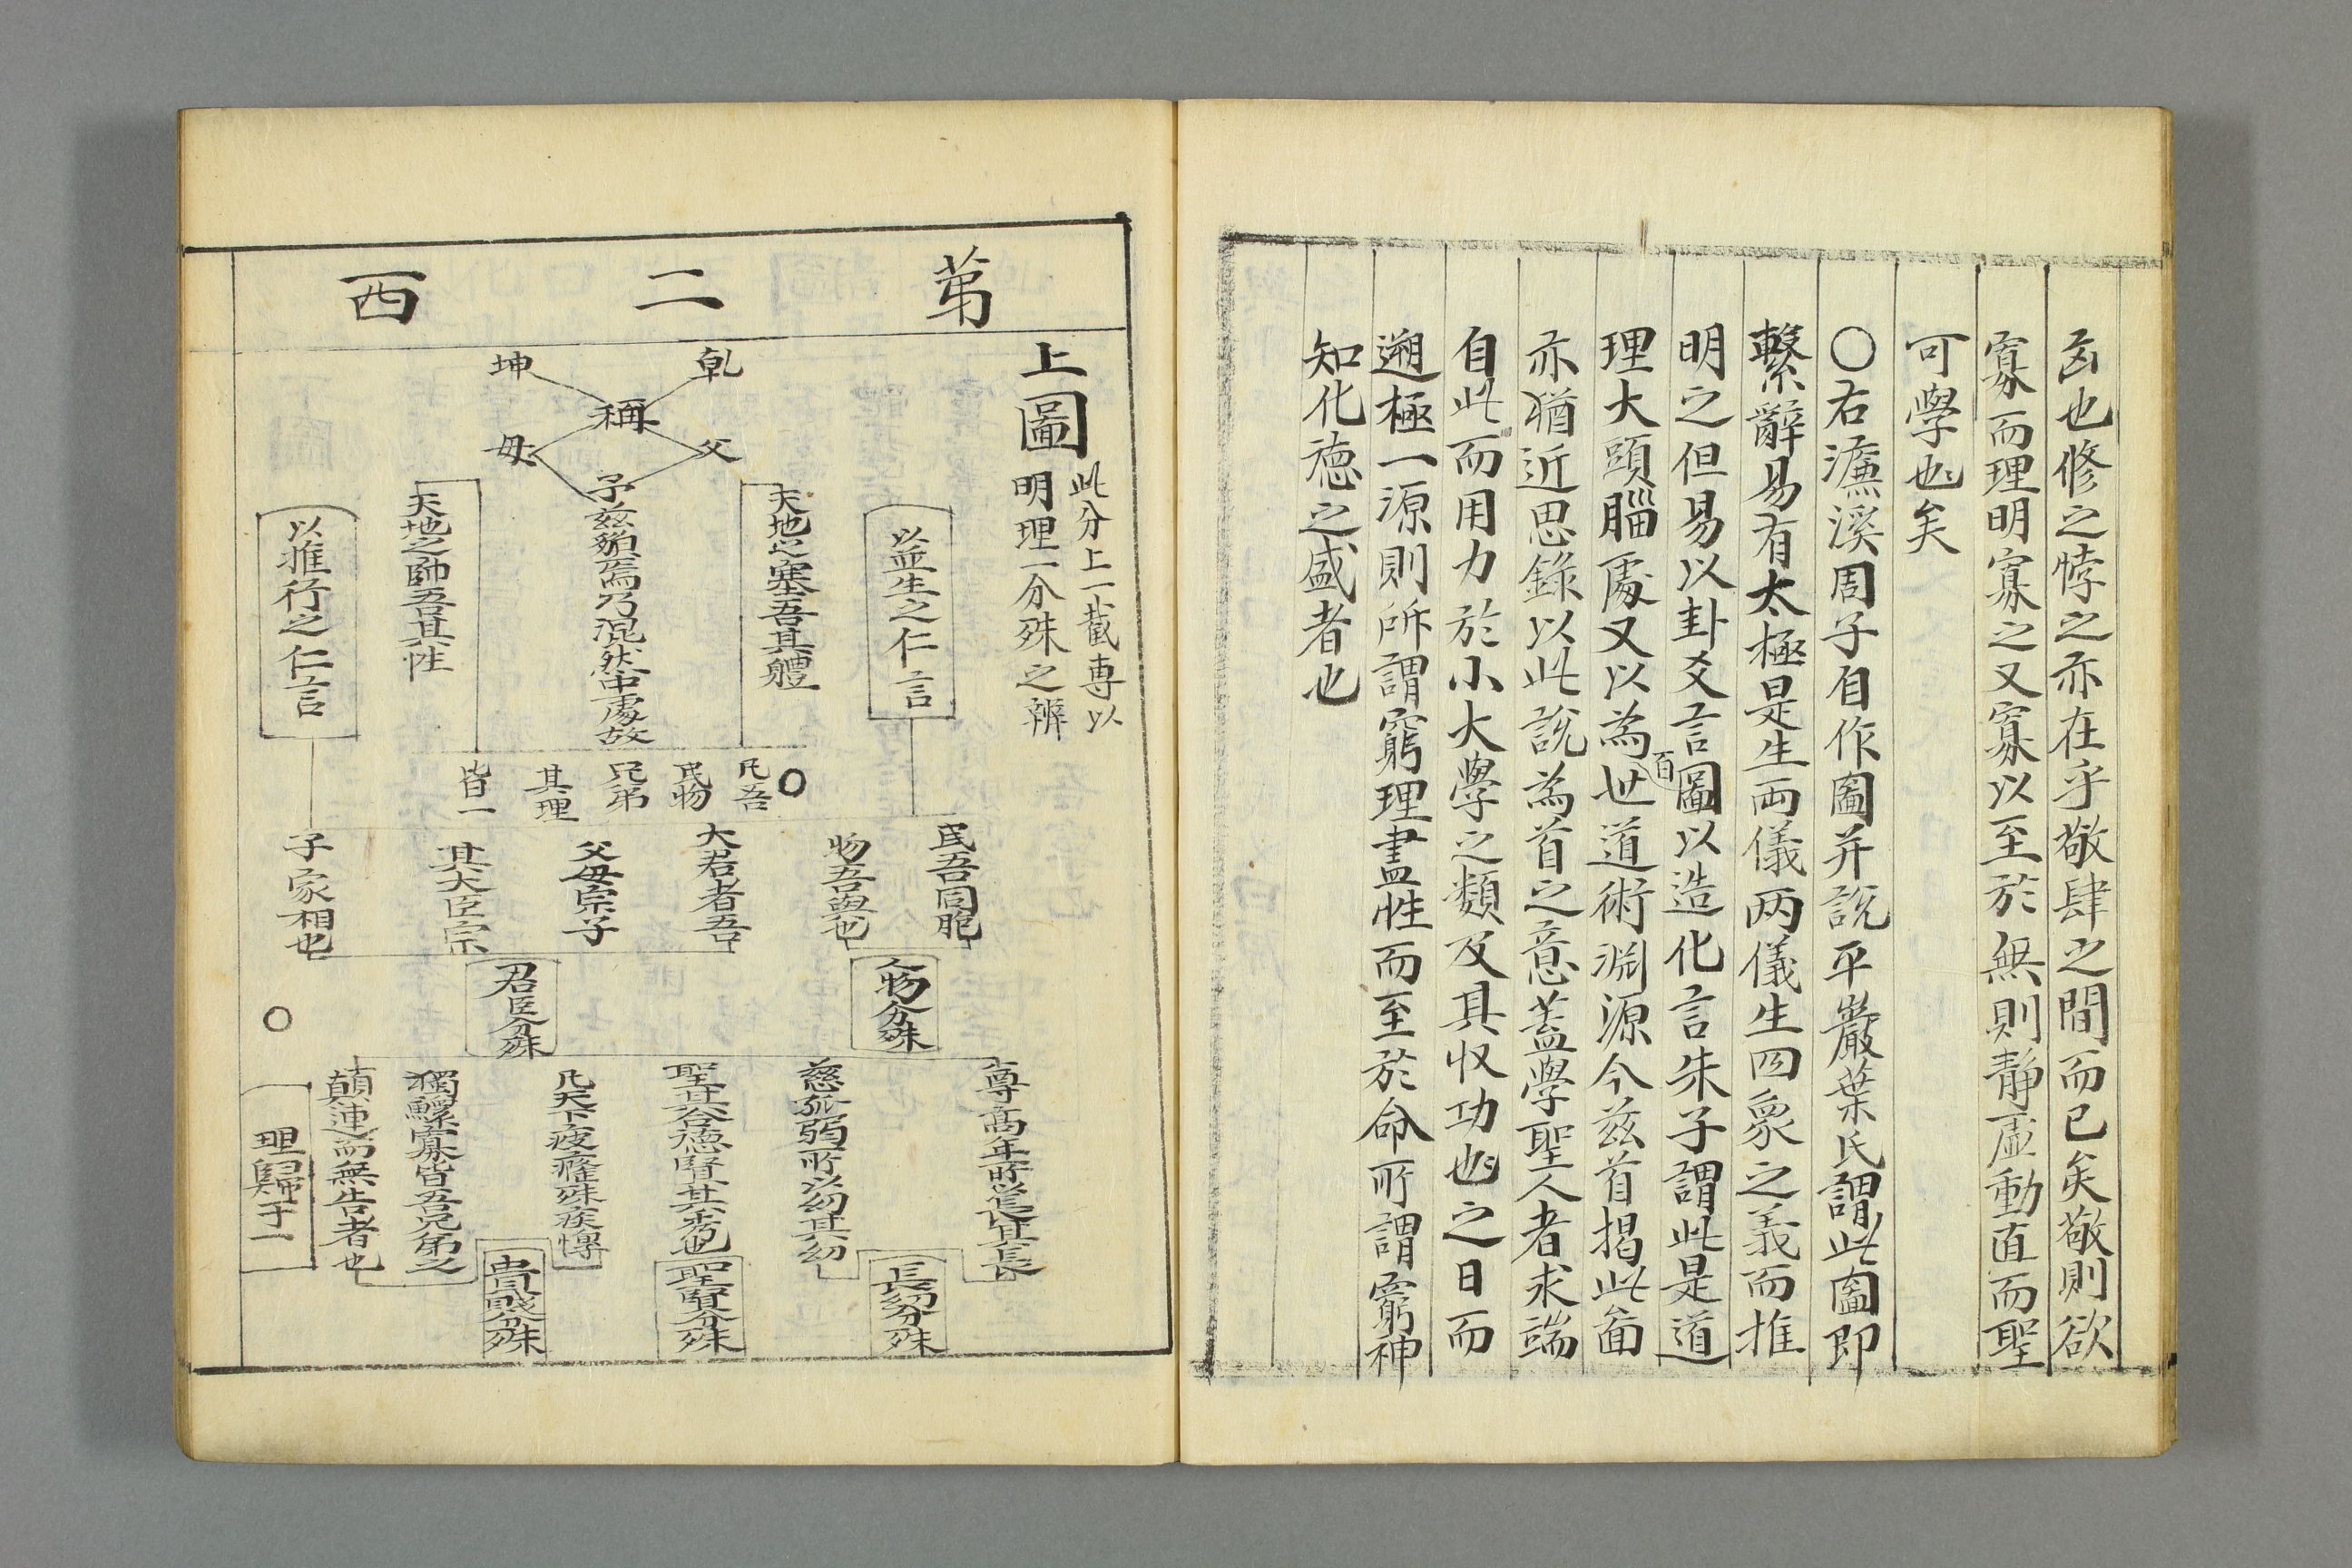 㐫也修之悖之亦在乎敬肆之間而已矣敬則欲
寡而理明寡之又寡以至於無則靜虛動直而聖
可學也矣
○右濂溪周子自作圖并說平巖葉氏謂此圖即
繫辭易有太極是生兩儀兩儀生四象之義而推
明之但易以卦爻言圖以造化言朱子謂此是道
理大頭腦處又以為百世道術淵源今茲首揭此圖
亦猶近思錄以此說為首之意蓋學聖人者求端
自此而用力於小大學之類及其収功也之日而
遡極一源則所謂窮理盡性而至於命所謂窮神
知化德之盛者也
第二西
上圖
此分上一截專以
明理一分殊之辨
乾
坤
稱
父
母
子茲藐焉乃混然中處故
以並生之仁言
天地之塞吾其體
天地之帥吾其性
以推行之仁言
○
凡吾
民物
兄弟
其理
皆一
民吾同胞
物吾與也
大君者吾
父母宗子
其大臣宗
子家相也
人物分殊
君臣分殊
尊高年所以長其長
慈孤弱所以幼其幼
聖其合德賢其秀也
凡天下疲癃殘疾惸
獨鰥寡皆吾兄弟之
顛連而無告者也
○
長幼分殊
聖賢分殊
貴賤分殊
理歸于一